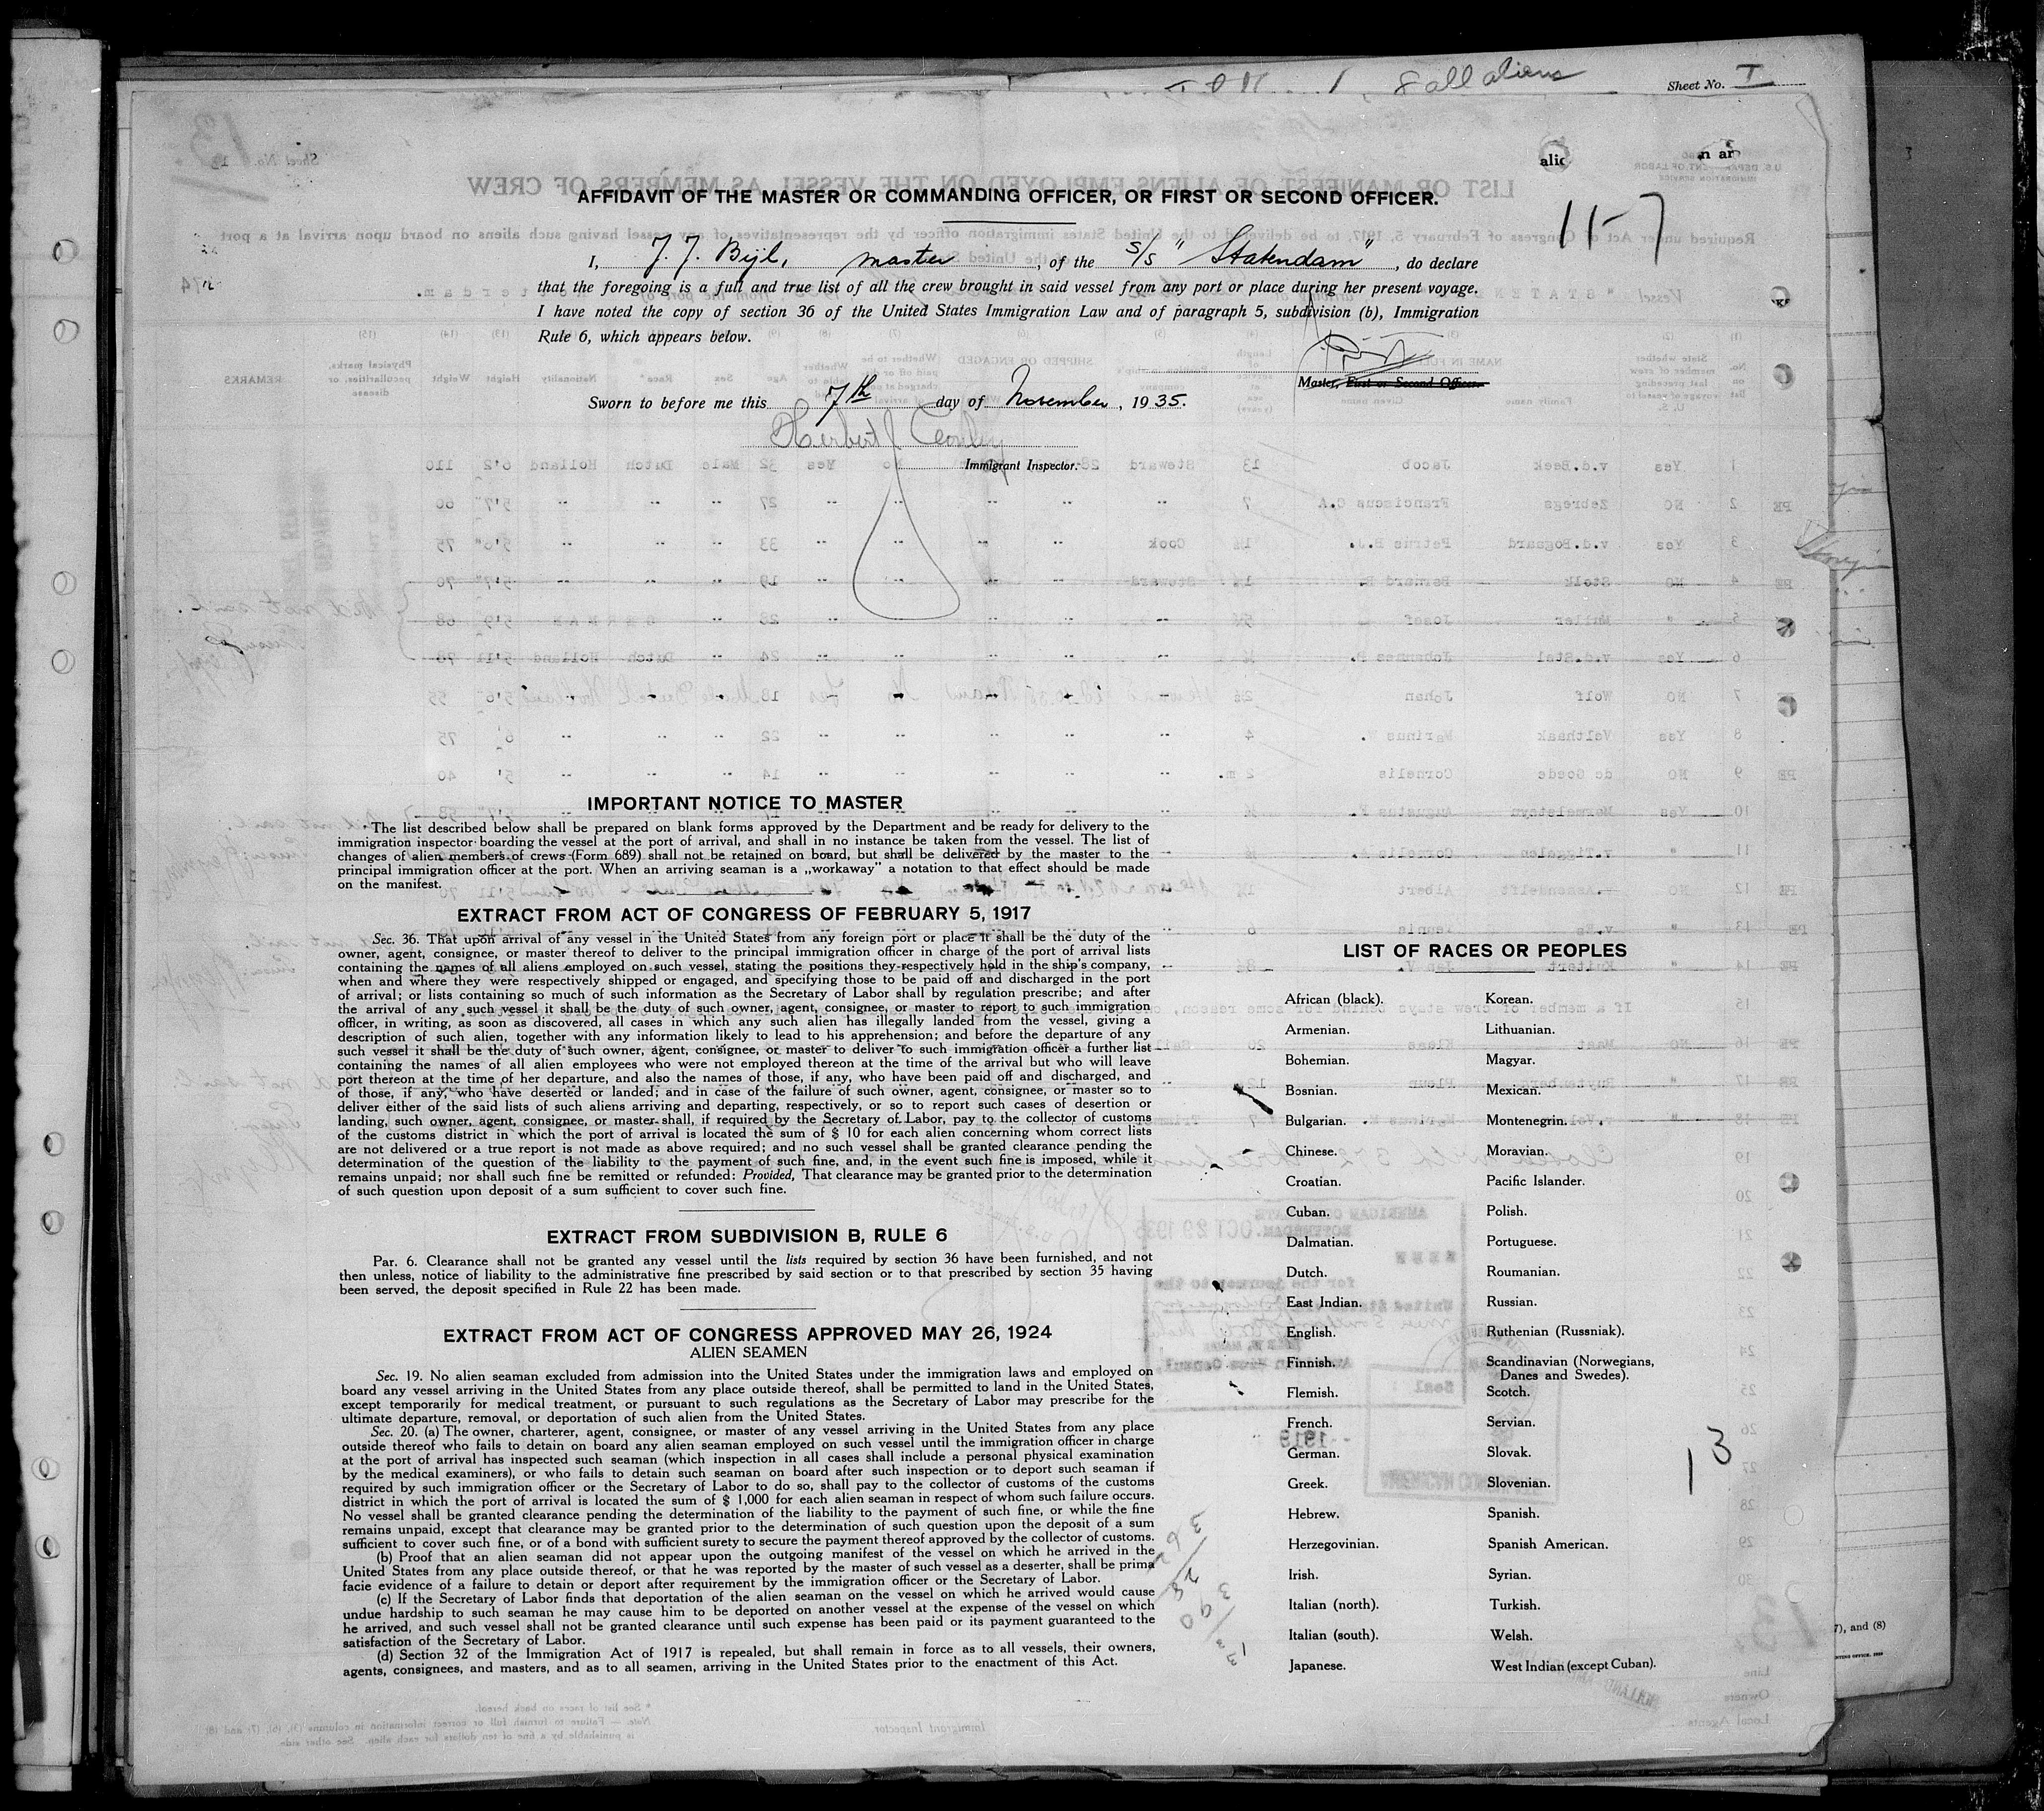 8 all aliens
Sheet No. I
alie
n ar
AFFIDAVIT OF THE MASTER OR COMMANDING OFFICER, OR FIRST OR SECOND OFFICER.
11-7
I, J. J. Bijl, master, of the s/s "Statendam", do declare
that the foregoing is a full and true list of all the crew brought in said vessel from any port or place during her present voyage.
I have noted the copy of section 36 of the United States Immigration Law and of paragraph 5, subdivision (b), Immigration
Rule 6, which appears below.
Master, First or Second Officer.
Sworn to before me this 7th day of November, 1935.
Herbert J
Immigrant Inspector.
IMPORTANT NOTICE TO MASTER
The list described below shall be prepared on blank forms approved by the Department and be ready for delivery to the
immigration inspector boarding the vessel at the port of arrival, and shall in no instance be taken from the vessel. The list of
changes of alien members of crews (Form 689) shall not be retained on board, but shall be delivered by the master to the
principal immigration officer at the port. When an arriving seaman is a „workaway" a notation to that effect should be made
on the manifest.
EXTRACT FROM ACT OF CONGRESS OF FEBRUARY 5, 1917
Sec. 36. That upon arrival of any vessel in the United States from any foreign port or place it shall be the duty of the
owner, agent, consignee, or master thereof to deliver to the principal immigration officer in charge of the port of arrival lists
containing the names of all aliens employed on such vessel, stating the positions they respectively hold in the ship's company,
when and where they were respectively shipped or engaged, and specifying those to be paid off and discharged in the port
of arrival; or lists containing so much of such information as the Secretary of Labor shall by regulation prescribe; and after
the arrival of any such vessel it shall be the duty of such owner, agent, consignee, or master to report to such immigration
officer, in writing, as soon as discovered, all cases in which any such alien has illegally landed from the vessel, giving a
description of such alien, together with any information likely to lead to his apprehension; and before the departure of any
such vessel it shall be the duty of such owner, agent, consignee, or master to deliver to such immigration officer a further list
containing the names of all alien employees who were not employed thereon at the time of the arrival but who will leave
port thereon at the time of her departure, and also the names of those, if any, who have been paid off and discharged, and
of those, if any, who have deserted or landed; and in case of the failure of such owner, agent, consignee, or master so to
deliver either of the said lists of such aliens arriving and departing, respectively, or so to report such cases of desertion or
landing, such owner, agent, consignee, or master shall, if required by the Secretary of Labor, pay to the collector of customs
of the customs district in which the port of arrival is located the sum of $ 10 for each alien concerning whom correct lists
are not delivered or a true report is not made as above required; and no such vessel shall be granted clearance pending the
determination of the question of the liability to the payment of such fine, and, in the event such fine is imposed, while it
remains unpaid; nor shall such fine be remitted or refunded: Provided, That clearance may be granted prior to the determination
of such question upon deposit of a sum sufficient to cover such fine.
EXTRACT FROM SUBDIVISION B, RULE 6
Par. 6. Clearance shall not be granted any vessel until the lists required by section 36 have been furnished, and not
then unless, notice of liability to the administrative fine prescribed by said section or to that prescribed by section 35 having
been served, the deposit specified in Rule 22 has been made.
EXTRACT FROM ACT OF CONGRESS APPROVED MAY 26, 1924
ALIEN SEAMEN
Sec. 19. No alien seaman excluded from admission into the United States under the immigration laws and employed on
board any vessel arriving in the United States from any place outside thereof, shall be permitted to land in the United States,
except temporarily for medical treatment, or pursuant to such regulations as the Secretary of Labor may prescribe for the
ultimate departure, removal, or deportation of such alien from the United States.
Sec. 20. (a) The owner, charterer, agent, consignee, or master of any vessel arriving in the United States from any place
outside thereof who fails to detain on board any alien seaman employed on such vessel until the immigration officer in charge
at the port of arrival has inspected such seaman (which inspection in all cases shall include a personal physical examination
by the medical examiners), or who fails to detain such seaman on board after such inspection or to deport such seaman if
required by such immigration officer or the Secretary of Labor to do so, shall pay to the collector of customs of the customs
district in which the port of arrival is located the sum of $ 1,000 for each alien seaman in respect of whom such failure occurs.
No vessel shall be granted clearance pending the determination of the liability to the payment of such fine, or while the fine
remains unpaid, except that clearance may be granted prior to the determination of such question upon the deposit of a sum
sufficient to cover such fine, or of a bond with sufficient surety to secure the payment thereof approved by the collector of customs.
(b) Proof that an alien seaman did not appear upon the outgoing manifest of the vessel on which he arrived in the
United States from any place outside thereof, or that he was reported by the master of such vessel as a deserter, shall be prima
facie evidence of a failure to detain or deport after requirement by the immigration officer or the Secretary of Labor.
(c) If the Secretary of Labor finds that deportation of the alien seaman on the vessel on which he arrived would cause
undue hardship to such seaman he may cause him to be deported on another vessel at the expense of the vessel on which
he arrived, and such vessel shall not be granted clearance until such expense has been paid or its payment guaranteed to the
satisfaction of the Secretary of Labor.
(d) Section 32 of the Immigration Act of 1917 is repealed, but shall remain in force as to all vessels, their owners,
agents, consignees, and masters, and as to all seamen, arriving in the United States prior to the enactment of this Act.
LIST OF RACES OR PEOPLES
African (black).
Armenian.
Bohemian.
Bosnian.
Bulgarian.
Chinese.
Croatian.
Cuban.
Dalmatian.
Dutch.
East Indian.
English.
Finnish.
Flemish.
French.
German.
Greek.
Hebrew.
Herzegovinian.
Irish.
Italian (north).
Italian (south).
Japanese.
Korean.
Lithuanian.
Magyar.
Mexican.
Montenegrin.
Moravian.
Pacific Islander.
Polish.
Portuguese.
Roumanian.
Russian.
Ruthenian (Russniak).
Scandinavian (Norwegians,
Danes and Swedes).
Scotch.
Servian.
Slovak.
Slovenian.
Spanish.
Spanish American.
Syrian.
Turkish.
Welsh.
West Indian (except Cuban).
13
7), and (8)